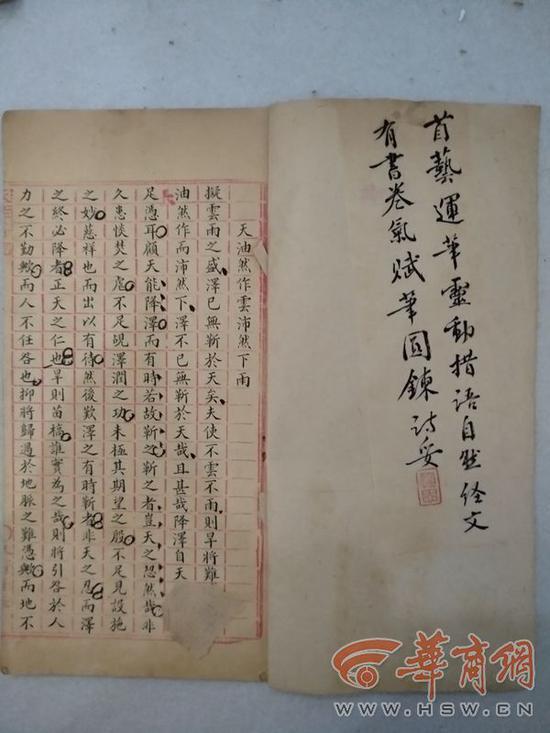 首藝運筆靈動措語自然经文
有書卷氣賦筆圓鍊詩妥
天油然作雲沛然下雨
擬雲雨之盛澤已無靳於天矣夫使不雲不雨則旱將難
油然作而沛然下澤不已無靳於天哉且甚哉降澤自天
足憑耳顧天能降澤而有時若故靳之靳之者豈天之忍然哉非
久患惔焚之虐不足覘澤澗之功未極其期望之殷不足見設施
之妙慈祥也而出以有待然後歎澤之有時靳者非天之忍而澤
之終必降者正天之仁也旱則苗槁誰實為之哉則將引咎於人
力之不勤歟而人不任咎也抑將歸過於地脈之難憑歟而地不
華商網
WWW.HSW.CN